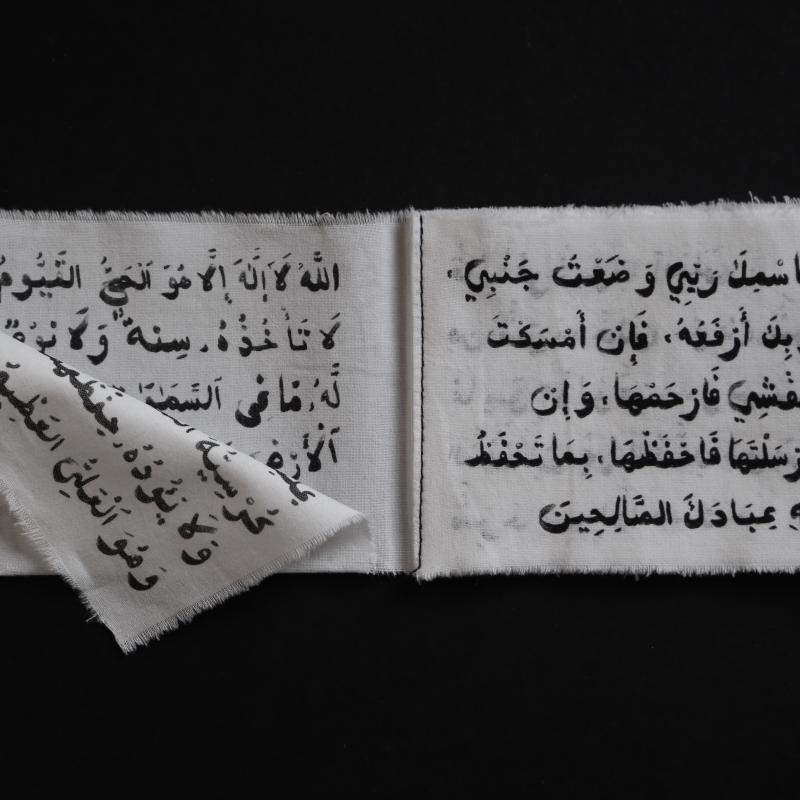 ٱسْمِكَ رَبِّي وَضَعْتُ جَنْبِي،
بِكَ أَرْفَعُهُ، فَإِن أَمْسَكْتَ
فَارْحَمْهَا، وَإِن
فَاحْفَظْهَا، بِمَا تَحْفَظُ
عِبَادَكَ الصَّالِحِينَ
اللَّهُ لَا إِلَٰهَ إِلَّا هُوَ ٱلْحَيُّ القَيُّومُ
لَا تَأْخُذُهُ سِنَةٌ وَلَا نَوْمٌ
لَّهُ مَا فِى ٱلسَّمَٰوَٰ
ٱلْأَرْضِ
كُرْسِيُّهُ
وَلَا يَئُودُهُ حِفْظُهُمَا
وَهُوَ ٱلْعَلِىُّ العَظِي